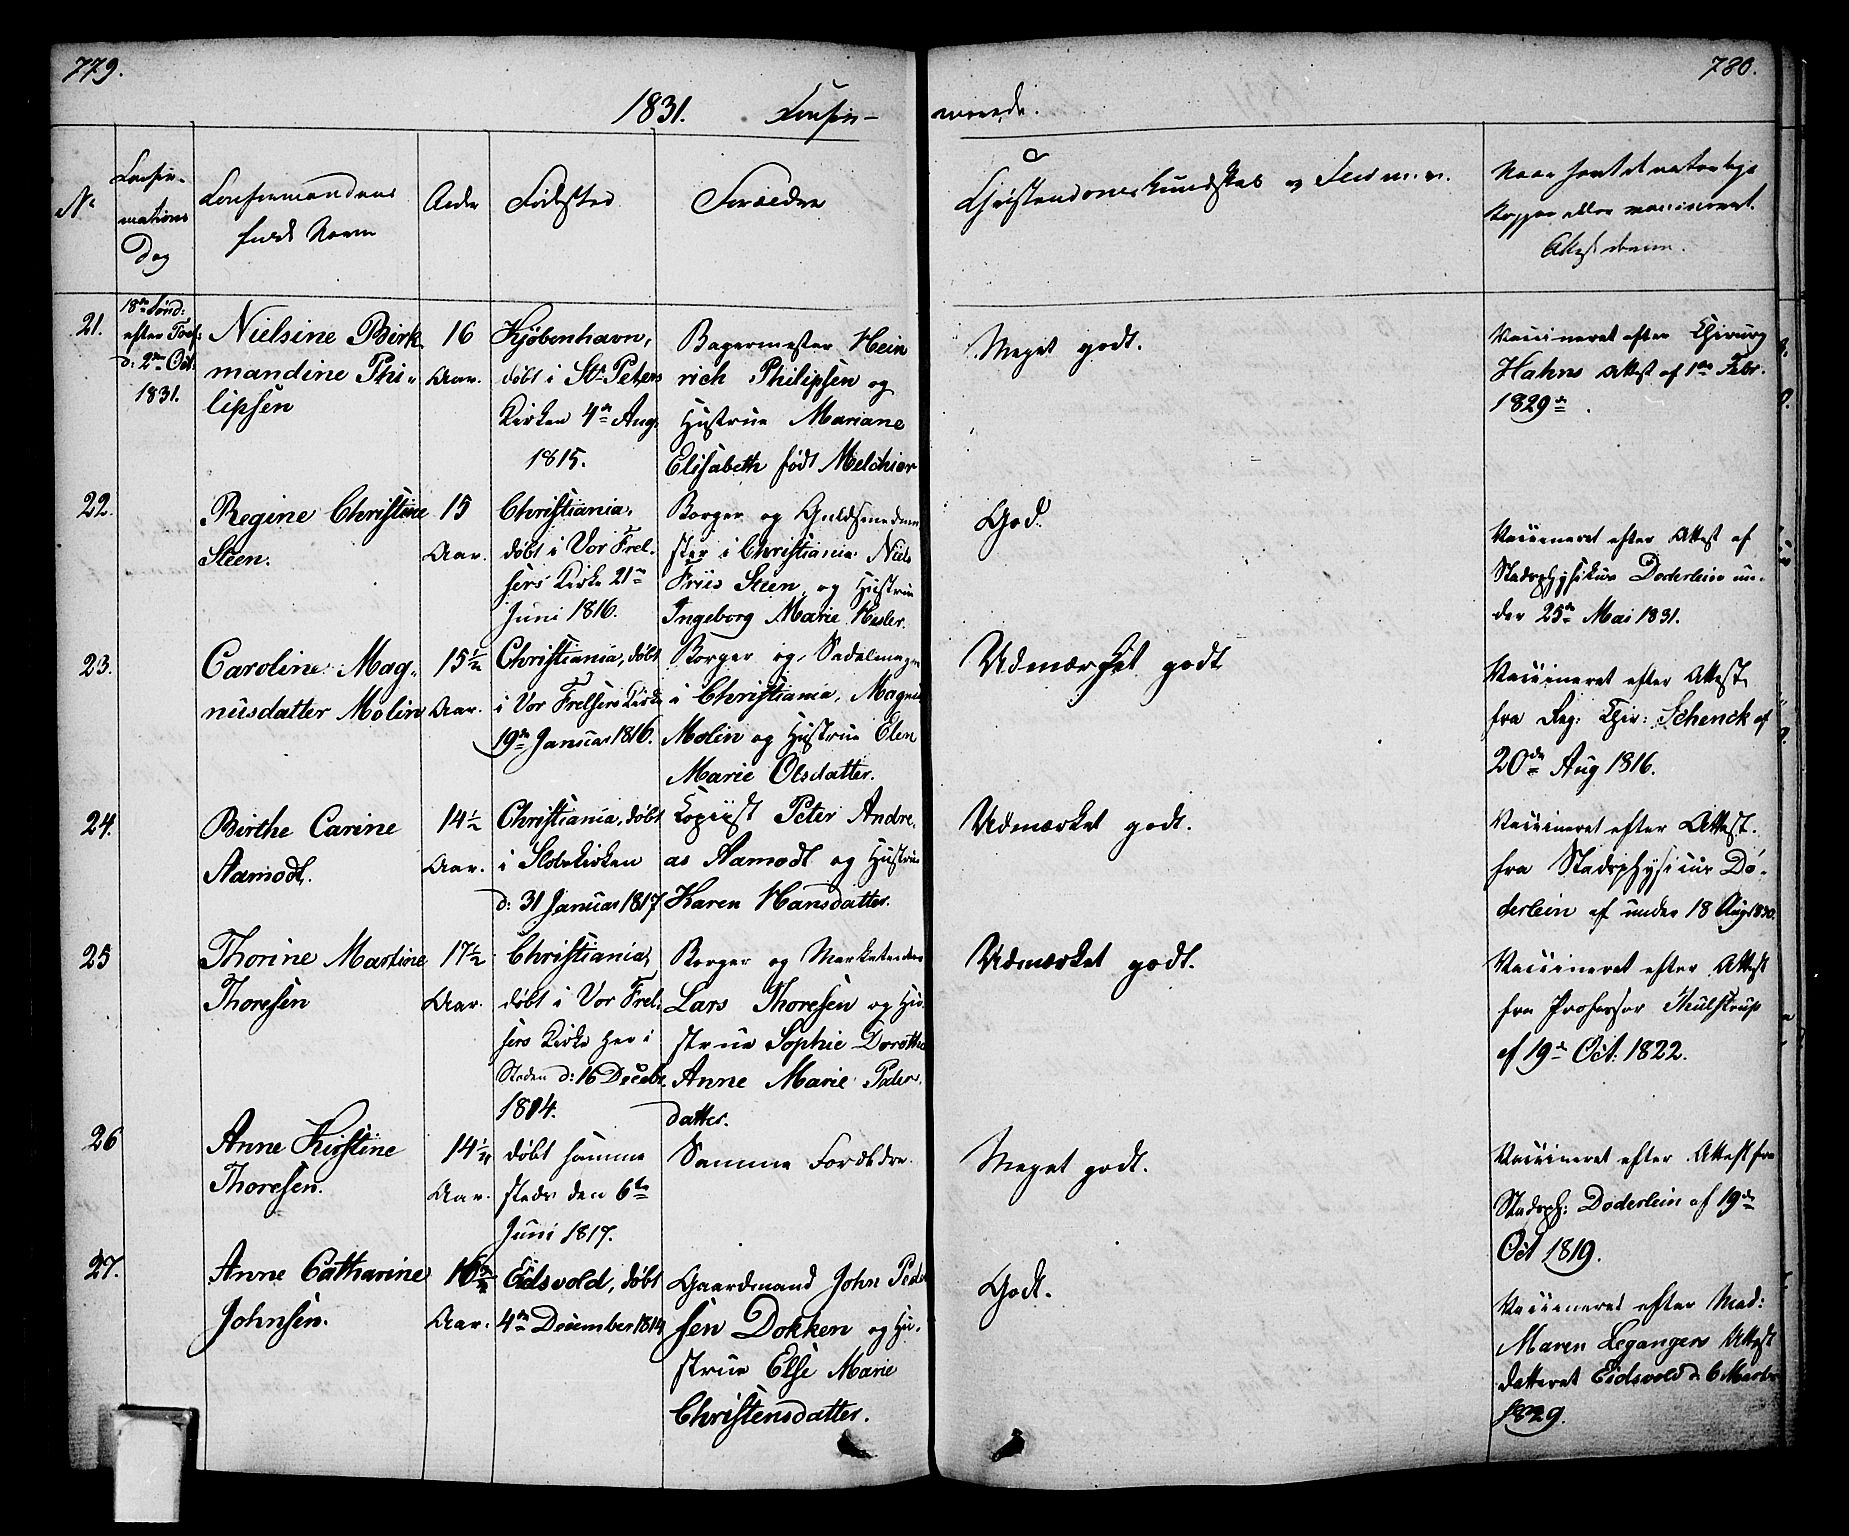 779.
780.
1831. Confir-
merede.
No
Confir-
mations
Dag
Confirmandens
fulde Navn
Alder
Fødested
Forældre
Christendomskundskab og
Naar havt de naturlige
Kopper eller vaccineret.
Attest derom.
21.
18de Sønd:
efter Tref:
d: 2den Oct:
1831.
Nielsine Birk
mandine Phi-
lipsen
16
Aar.
Kjøbenhavn,
døbt i St. Peters
Kirken 4de Aug.
1815.
Bagermester Hein
rich Philipsen og
Hustrue Mariane
Elisabeth født Melchior
Meget godt.
Vaccineret efter Chirurg
Hahns Attest af 1ste Febr.
1829
22.
Regine Christine
Steen.
15
Aar.
Christiania,
døbt i Vor Frel-
sers Kirke 21de
Juni 1816.
Borger og Guldsmedme
ster i Christiania Niels
Friis Steen og Hustrue
Ingeborg Marie Hesler.
God.
Vaccineret efter Attest af
Stadsphysikus Doderlein un-
der 25de Mai 1831.
23.
Caroline Mag-
nusdatter Molin
15½
Aar.
Christiania, døbt
i Vor Frelsers Kirke
19de Januar 1816.
Borger og Sadelmager
i Christiania, Magnus
Molin og Hustrue Elen
Marie Olsdatter.
Udmærket godt
Vaccineret efter Attest
fra Reg: Chir: Schenck af
20de Aug 1816.
24.
Birthe Carine
Aamodt.
14½
Aar.
Christiania, døbt
i Slotskirken
d: 31 Januar 1817
Kopiist Peter Andre-
as Aamodt og Hustrue
Karen Hansdatter.
Udmærket godt.
Vaccineret efter Attest.
fra Stadsphysicus Dö-
derlein af under 18 Aug 1830.
25
Thorine Martine
Thoresen
17½
Aar.
Christiania,
døbt i Vor Frel-
sers Kirke her i
Staden d: 16 Decebr.
1814.
Borger og Marketender
Lars Thoresen og Hu-
strue Sophie Dorothea
Anne Marie Peder
datter.
Udmærket godt.
Vaccineret efter Attest
fra Professor Thulstrup
af 19de Oct: 1822.
26
Anne Kirstine
Thoresen.
14¼
Aar.
døbt samme
steds den 6te
Juni 1817.
Samme Forældre.
Meget godt.
Vaccineret efter Attest fra
Stadsph: Doderlein af 19de
Oct 1819.
27.
Anne Catharine
Johnsen.
16½
Aar.
Eidsvold, døbt
4de December 1814
Gaardmand John Peder
sen Dokken og Hu-
strue Else Marie
Christensdatter.
Godt.
Vaccineret efter Mad:
Maren Legangers Attest
dateret Eidsvold d. 6 Marts
1829.